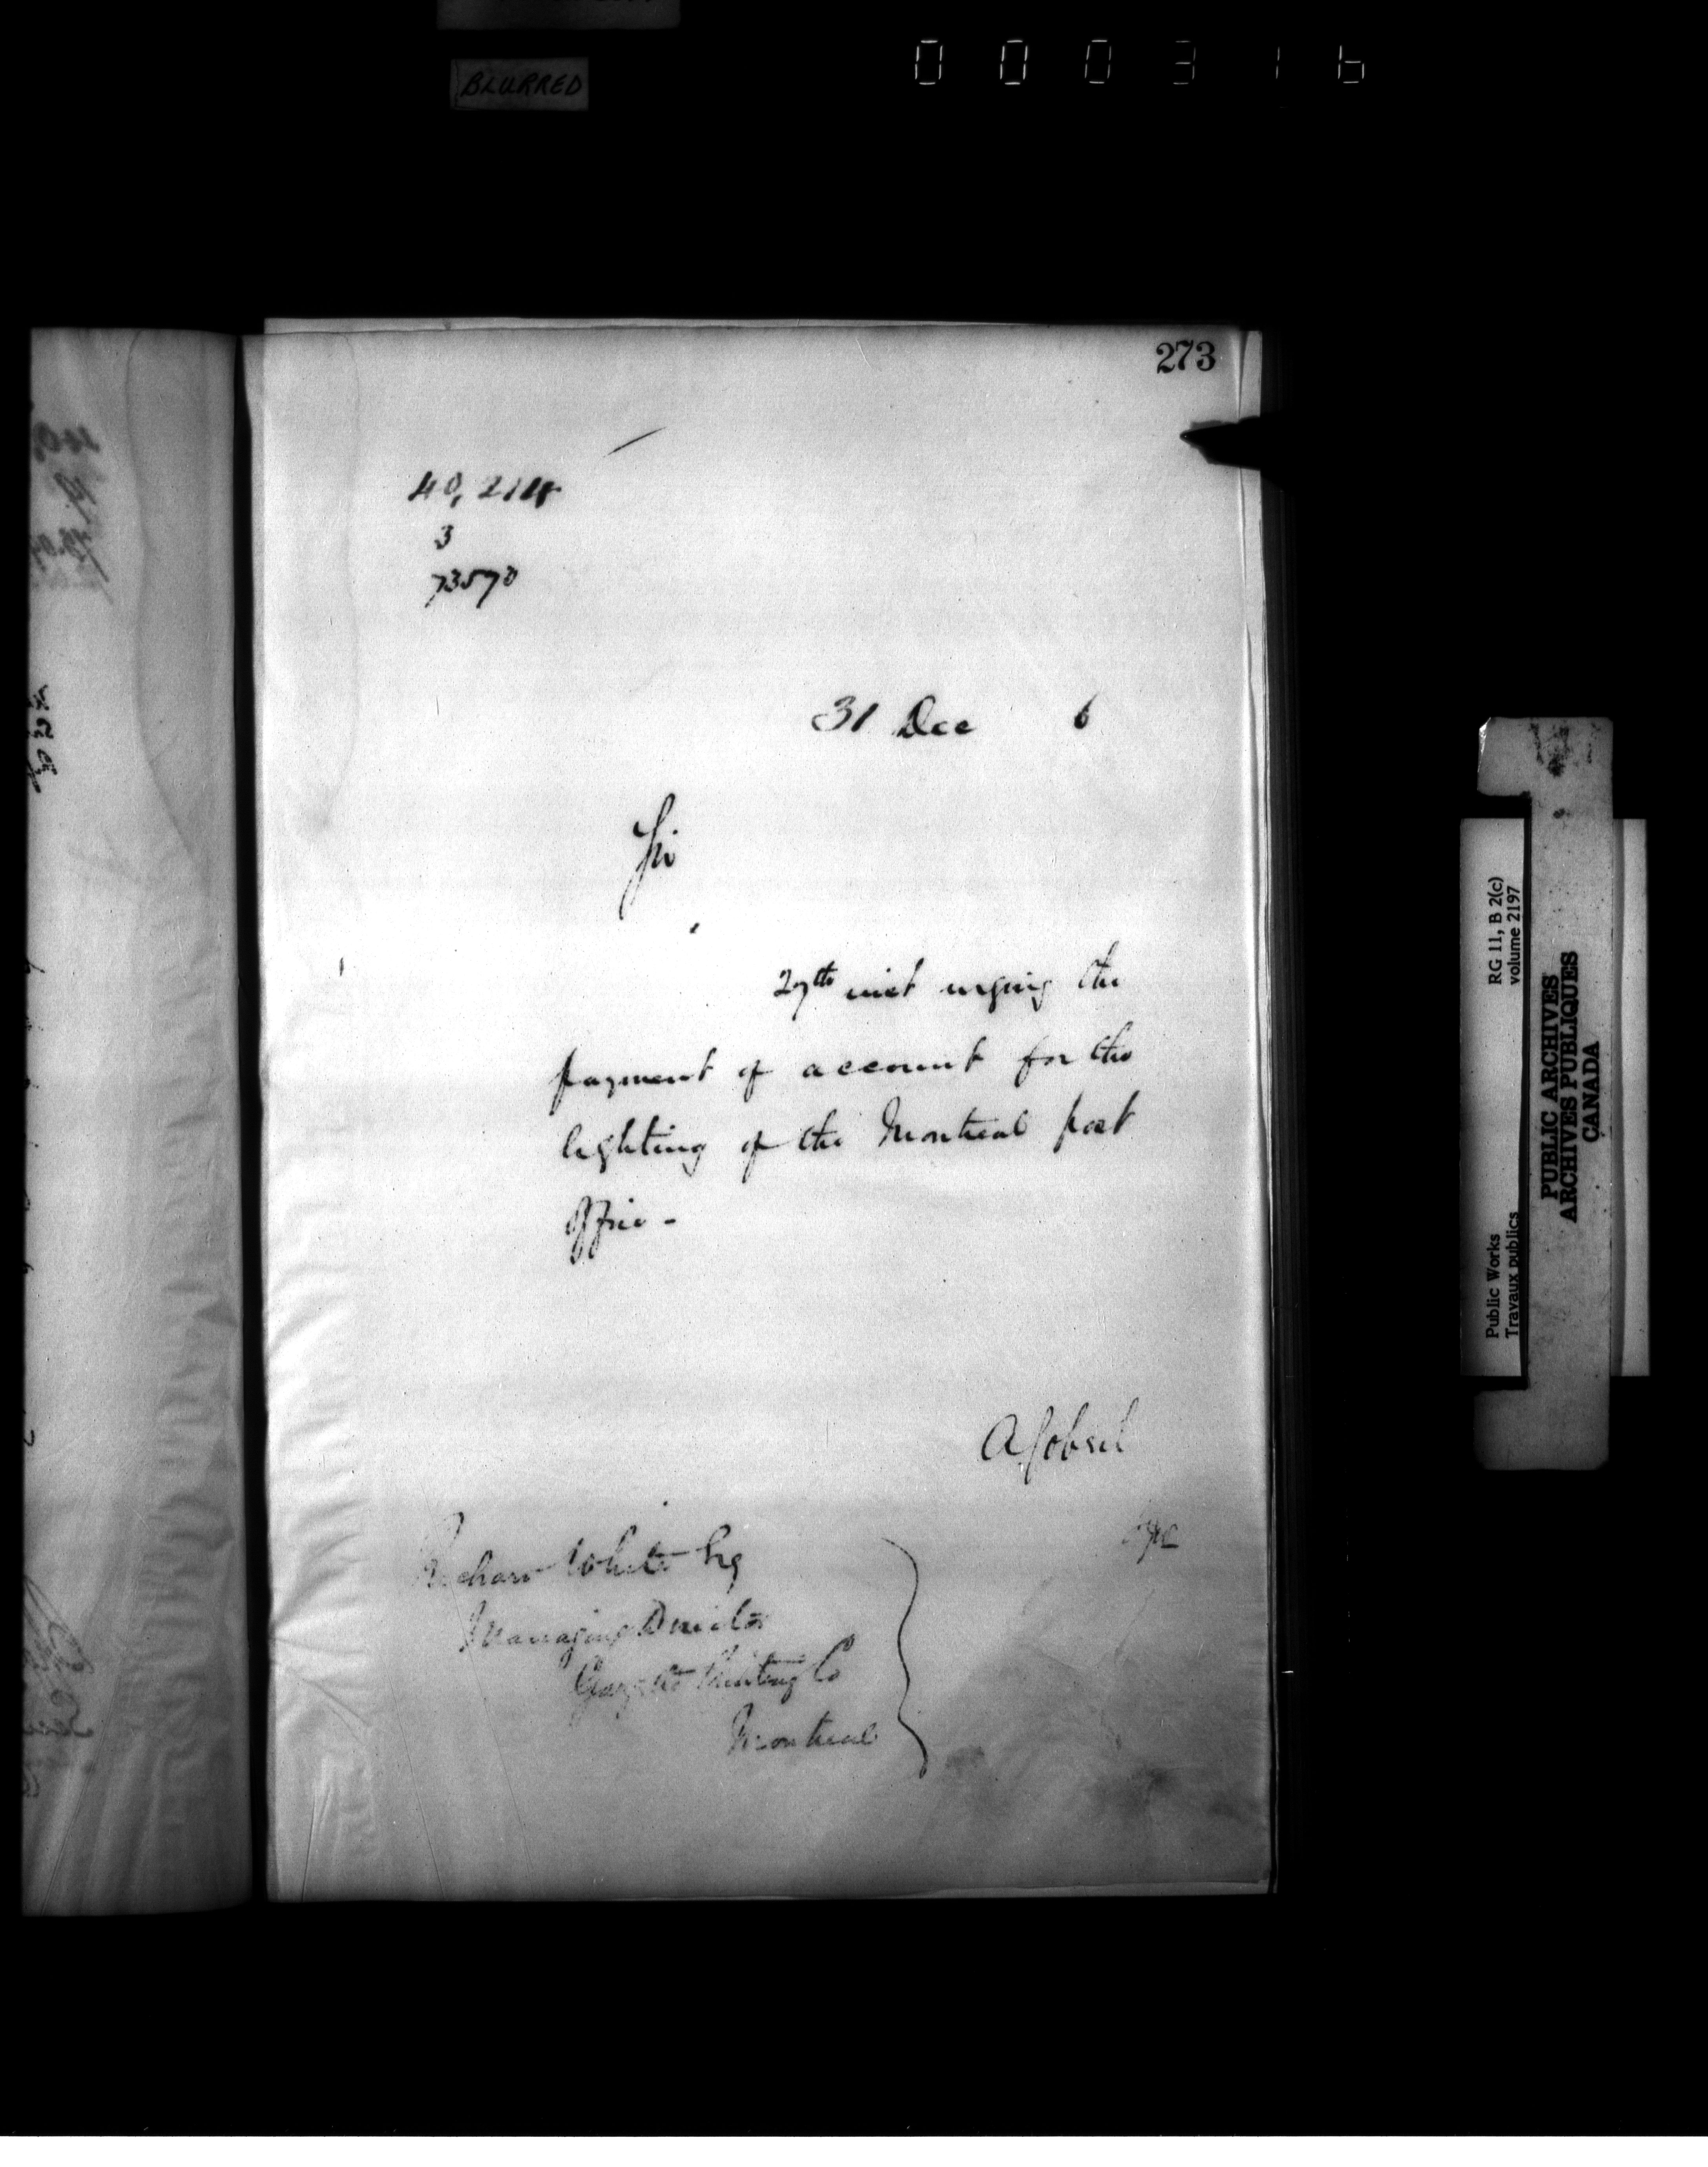 BLURRED
000316
273
40,214
3
73570
31 Dec 6
Sir
27th inst urging the
payment of account for the
lighting of the Montreal post
Office -
A Gobeil
Richard White Esq
Managing Director
Gazette Printing Co
Montreal
RG 11, B 2(c)
volume 2197
Public Works
Travaux publics
PUBLIC ARCHIVES
ARCHIVES PUBLIQUES
CANADA